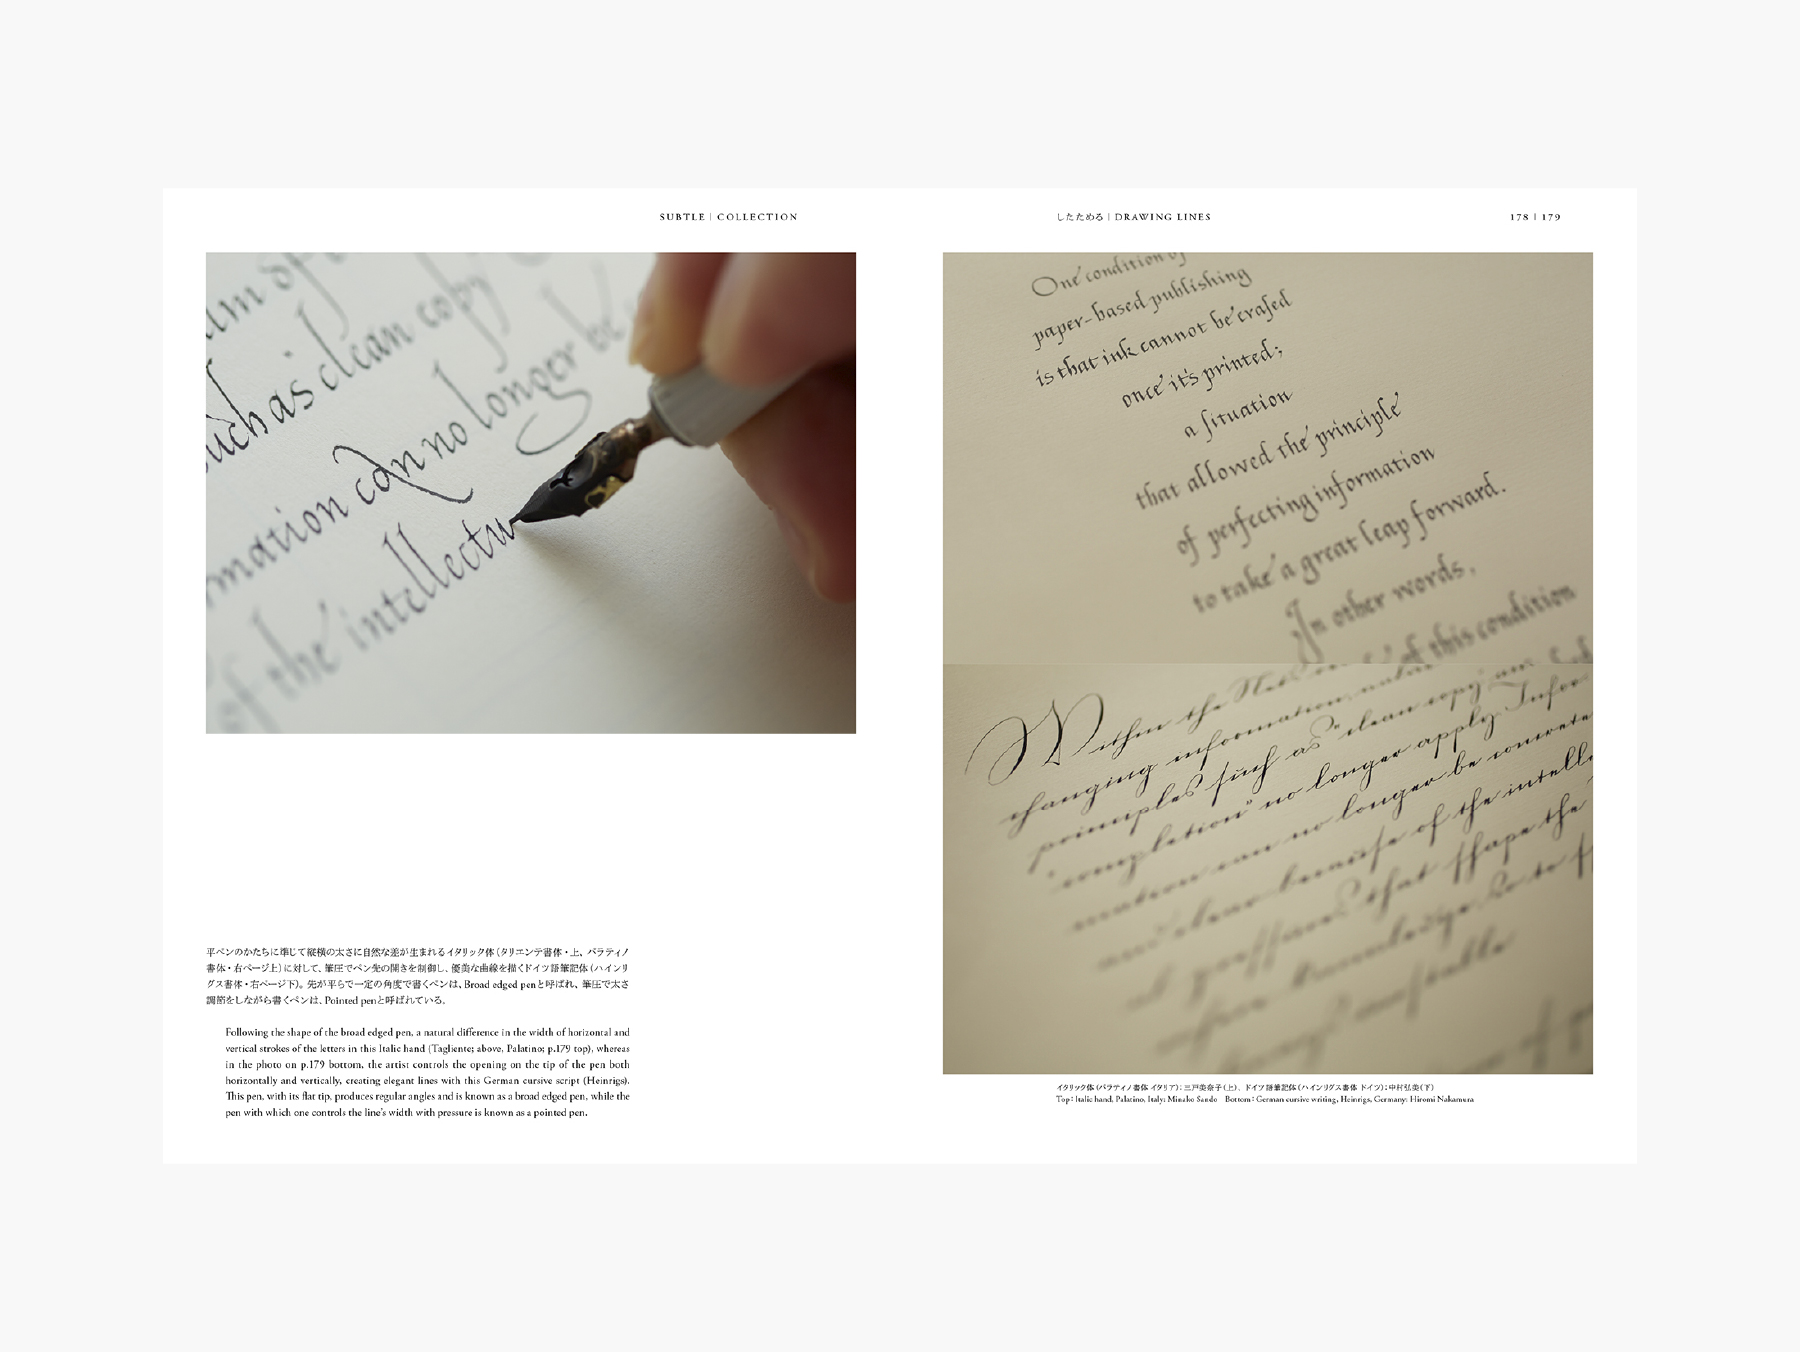 SUBTLE | COLLECTION
such as clean copy
mation can no longer be
of the intellectu
平ペンのかたちに準じて縦横の太さに自然な差が生まれるイタリック体（タリエンテ書体・上、パラティノ
書体・右ページ上）に対して、筆圧でペン先の開きを制御し、優美な曲線を描くドイツ語筆記体（ハインリ
グス書体・右ページ下）。先が平らで一定の角度で書くペンは、Broad edged penと呼ばれ、筆圧で太さ
調節をしながら書くペンは、Pointed penと呼ばれている。
Following the shape of the broad edged pen, a natural difference in the width of horizontal and
vertical strokes of the letters in this Italic hand (Tagliente; above, Palatino; p.179 top), whereas
in the photo on p.179 bottom, the artist controls the opening on the tip of the pen both
horizontally and vertically, creating elegant lines with this German cursive script (Heinrigs).
This pen, with its flat tip, produces regular angles and is known as a broad edged pen, while the
pen with which one controls the line's width with pressure is known as a pointed pen.
したためる | DRAWING LINES
178 | 179
One condition of
paper-based publishing
is that ink cannot be erased
once it's printed;
a situation
that allowed the principle
of perfecting information
to take a great leap forward.
In other words,
of this condition
Within the
changing information
principles such as "clean copy" an
"completion" no longer apply. Infor-
mation can no longer be concrete
and clear because of the intelle
that shape the
イタリック体（パラティノ書体 イタリア）：三戸美奈子（上）、ドイツ語筆記体（ハインリグス書体 ドイツ）：中村弘美（下）
Top: Italic hand, Palatino, Italy: Minako Sando Bottom: German cursive writing, Heinrigs, Germany: Hiromi Nakamura